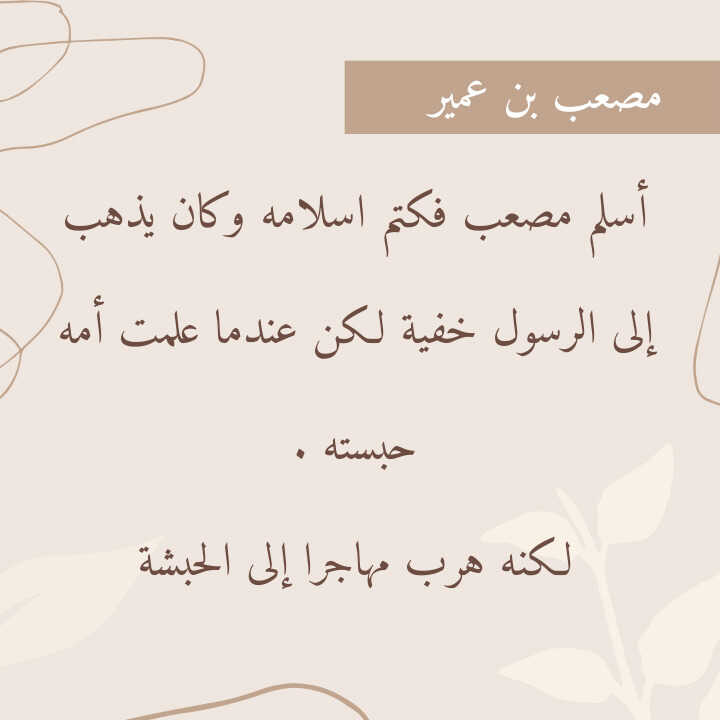 مصعب بن عمير
أسلم مصعب فكتم اسلامه وكان يذهب
إلى الرسول خفية لكن عندما علمت أمه
حبسته .
لكنه هرب مهاجرا إلى الحبشة